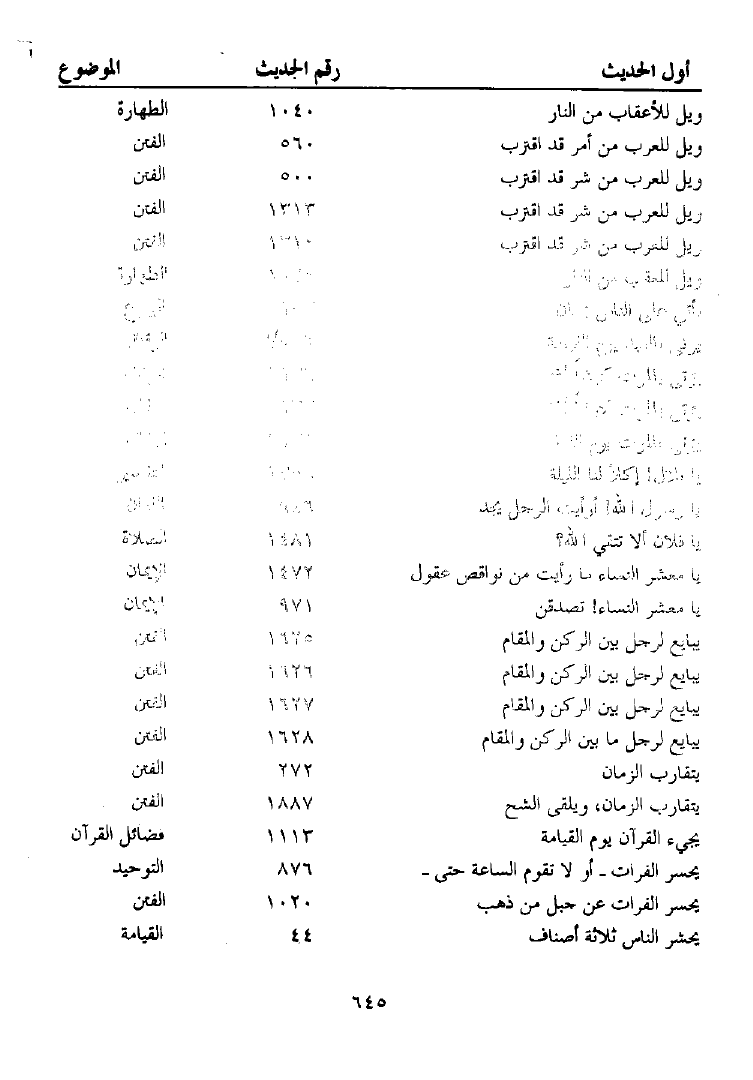 أول الحديث رقم الحديث الموضوع
ويل للأعقاب من النار ١٠٤٠ الطهارة
ويل للعرب من أمر قد اقترب ٥٦٠ الفتن
ويل للعرب من شر قد اقترب ٥٠٠ الفتن
ويل للعرب من شر قد اقترب ١٣١٣ الفتن
ويل للعرب من شر قد اقترب الفتن
ويل من النار الطهارة
يأتي على الناس زمان
يوم القيامة
يؤتى بالموت
يؤتى بالموت
يؤتى بالموت يوم
يا بلال! إكلأ لنا الليلة
يا رسول الله! أرأيت الرجل يجد ٩٨٦
يا فلان ألا تتقي الله؟ ١٤٨١ الصلاة
يا معشر النساء ما رأيت من نواقص عقول ١٤٧٢ الإيمان
يا معشر النساء! تصدقن ٩٧١ الإيمان
يبايع لرجل بين الركن والمقام ١٦٢٥ الفتن
يبايع لرجل بين الركن والمقام ١٦٢٦ الفتن
يبايع لرجل بين الركن والمقام ١٦٢٧ الفتن
يبايع لرجل ما بين الركن والمقام ١٦٢٨ الفتن
يتقارب الزمان ٢٧٢ الفتن
يتقارب الزمان، ويلقى الشح ١٨٨٧ الفتن
يجيء القرآن يوم القيامة ١١١٣ فضائل القرآن
يحسر الفرات ـ أو لا تقوم الساعة حتى ـ ٨٧٦ التوحيد
يحسر الفرات عن جبل من ذهب ١٠٢٠ الفتن
يحشر الناس ثلاثة أصناف ٤٤ القيامة
٦٤٥